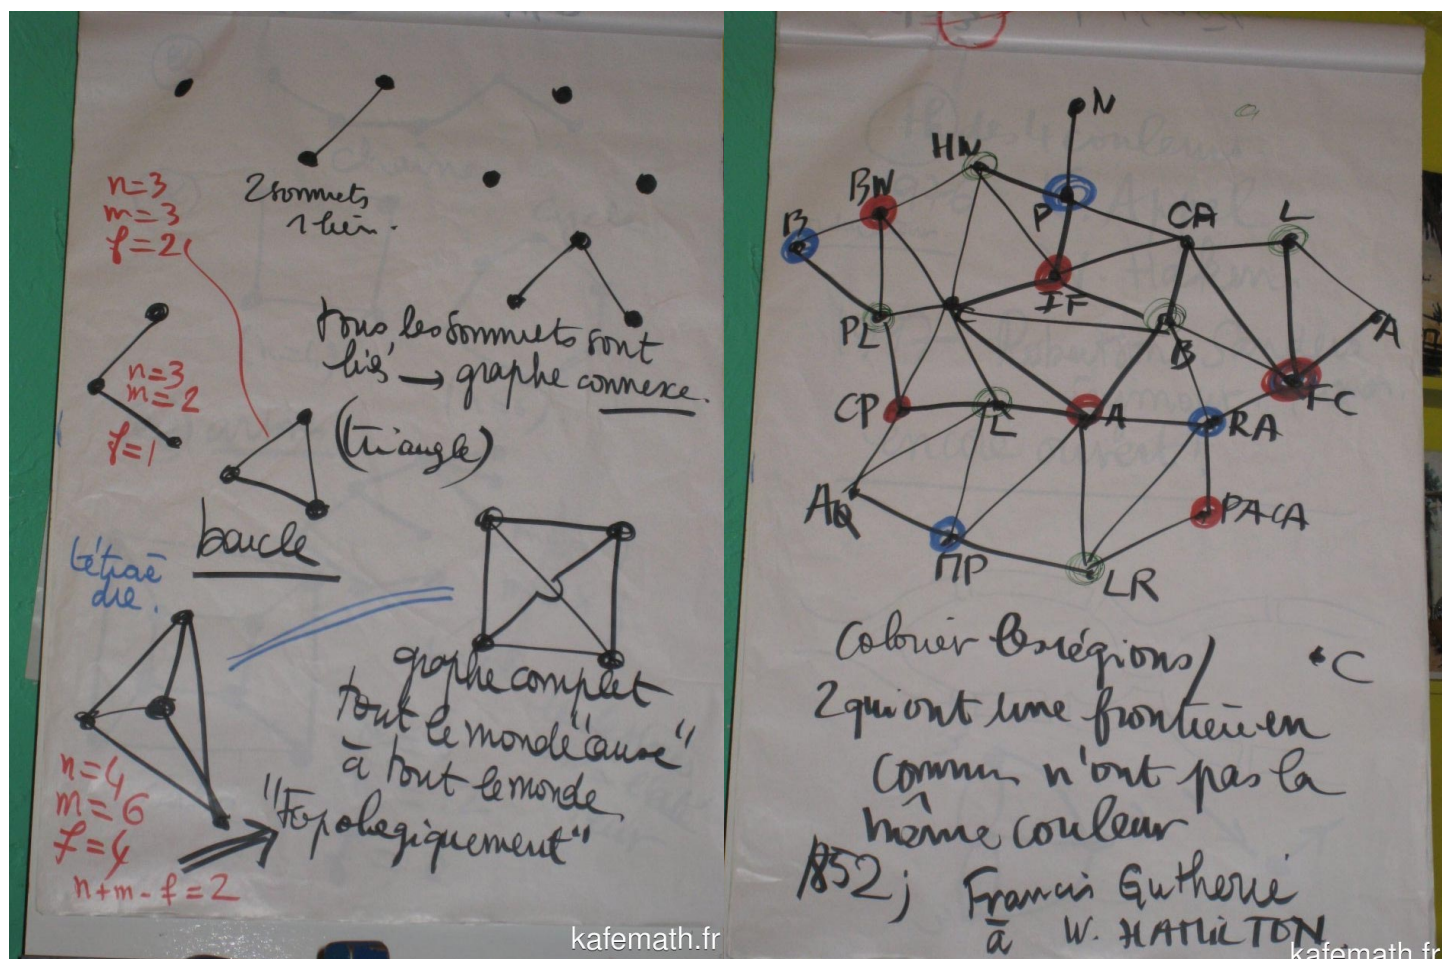 n=3
m=3
f=2
2 sommets
1 lien.
tous les sommets sont
liés → graphe connexe.
n=3
m=2
f=1
(triangle)
boucle
tétraè
dre.
graphe complet
tout le monde "cause"
à tout le monde
"Topologiquement"
n=4
m=6
f=4
n+m-f=2
kafemath.fr
N
HN
BN
P
CA
L
B
IF
PL
C
B
A
FC
CP
L
A
RA
AQ
PACA
MP
LR
Colorier les régions/
C
2 qui ont une frontière en
commun n'ont pas la
même couleur
1852 ;
Francis Gutherie
à W. HAMILTON.
kafemath.fr